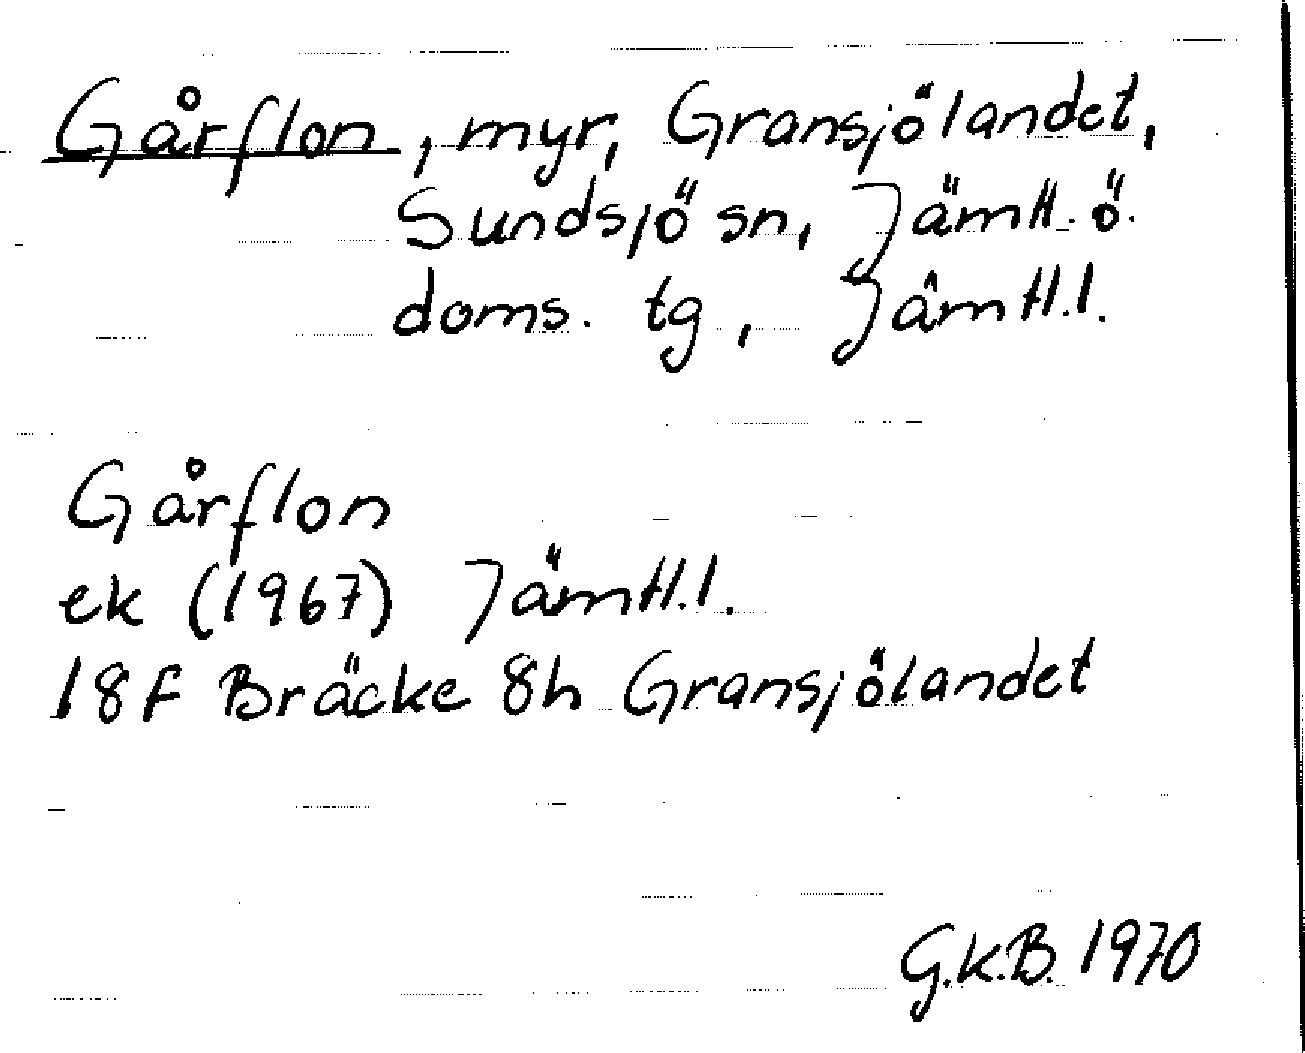 Gårflon, myr, Gransjölandet,
Sundsjö sn, Jämtl. ö.
doms. tg, Jämtl.l.
Gårflon
ek (1967) Jämtl.l.
18F Bräcke 8h Gransjölandet
G.K.B. 1970